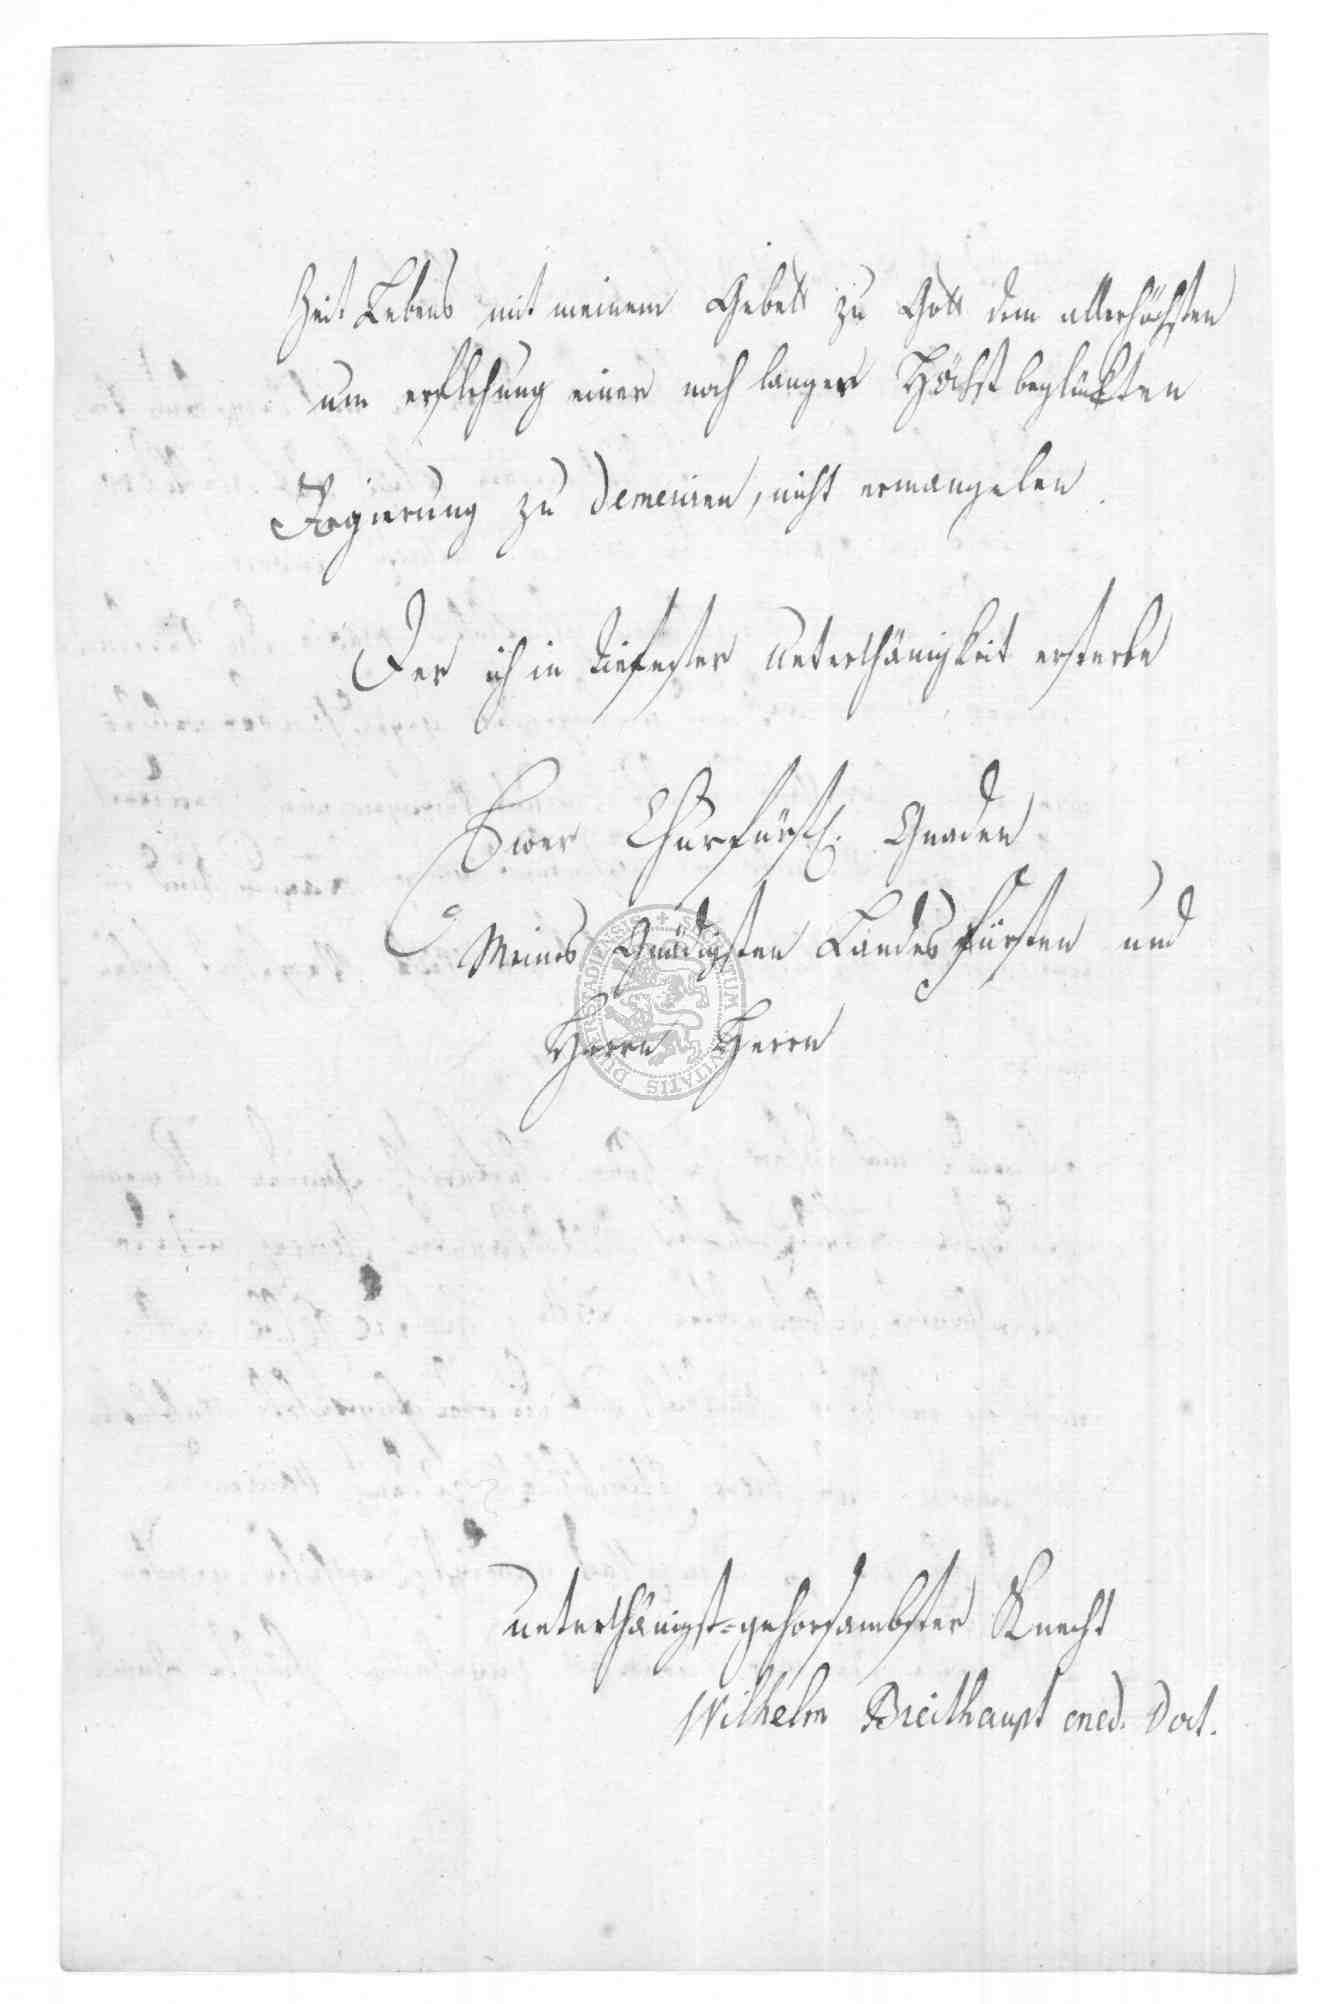 Zeit Lebens mit meinem Gebett zu Gott dem allerhöchsten
um erflehung einer noch langer Höchst beglückten
Regierung zu demeriren, nicht ermangelen.
Der ich in tiefester unterthänigkeit ersterbe
Ewer Churfürstl. Gnaden
Meines Gnädigsten Landes fürsten und
Herrn Herrn
unterthänigst-gehorsambster Knecht
Wilhelm Breithaupt med. Doct.